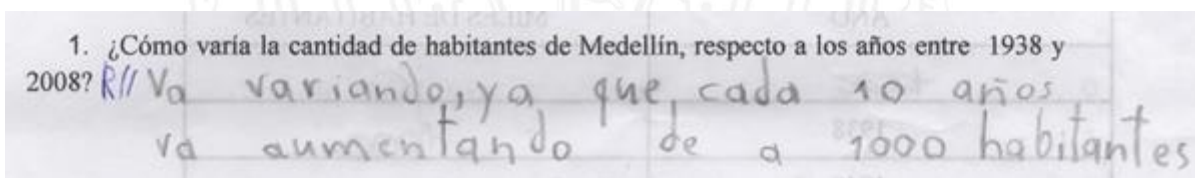 1. ¿Cómo varía la cantidad de habitantes de Medellín, respecto a los años entre 1938 y
2008? R// Va variando, ya que, cada 10 años
va aumentando de a 1000 habitantes